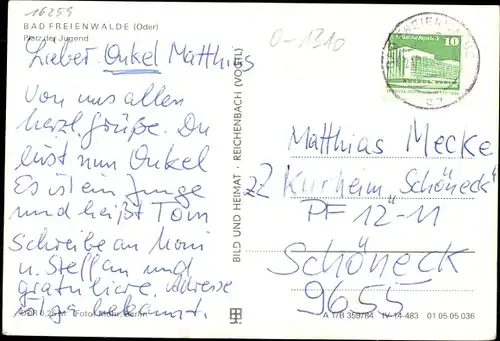 16259
BAD FREIENWALDE (Oder)
Platz der Jugend
O-1310
Lieber Onkel Matthias
Von uns allen
herzl. Grüße. Du
bist nun Onkel
Es ist ein Junge
und heißt Tom
Schreibe an Moni
u. Steffan und
gratuliere. Adresse
ist ja bekannt.
DDR 0,25 M Foto: Mohr, Berlin
BILD UND HEIMAT · REICHENBACH (VOGTL)
10
Matthias Mecke
zZ Kurheim „Schöneck"
PF 12-11
Schöneck
9655
A 1/B 359/84 IV-14-483 01 05 05 036